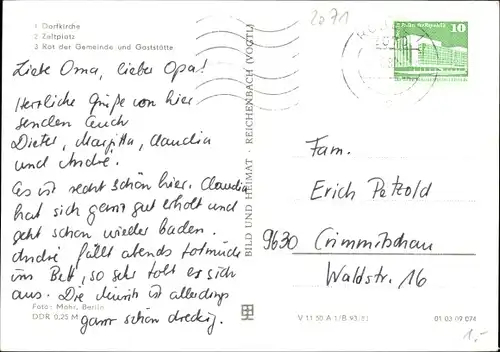 1 Dorfkirche
2 Zeltplatz
3 Rat der Gemeinde und Gaststätte
2071
10
Liebe Oma, lieber Opa!
Herzliche Grüße von hier
senden Euch
Dieter, Margitta, Claudia
und André.
Es ist recht schön hier. Claudia
hat sich ganz gut erholt und
geht schon wieder baden.
André fällt abends totmüde
ins Bett, so sehr tobt er sich
aus. Die Müritz ist allerdings
ganz schön dreckig.
Foto: Mohr, Berlin
DDR 0,25 M
BILD UND HEIMAT · REICHENBACH (VOGTL)
Fam.
Erich Petzold
9630 Crimmitschau
Waldstr. 16
V 11 50 A 1/B 93/83
01 03 09 074
1,-